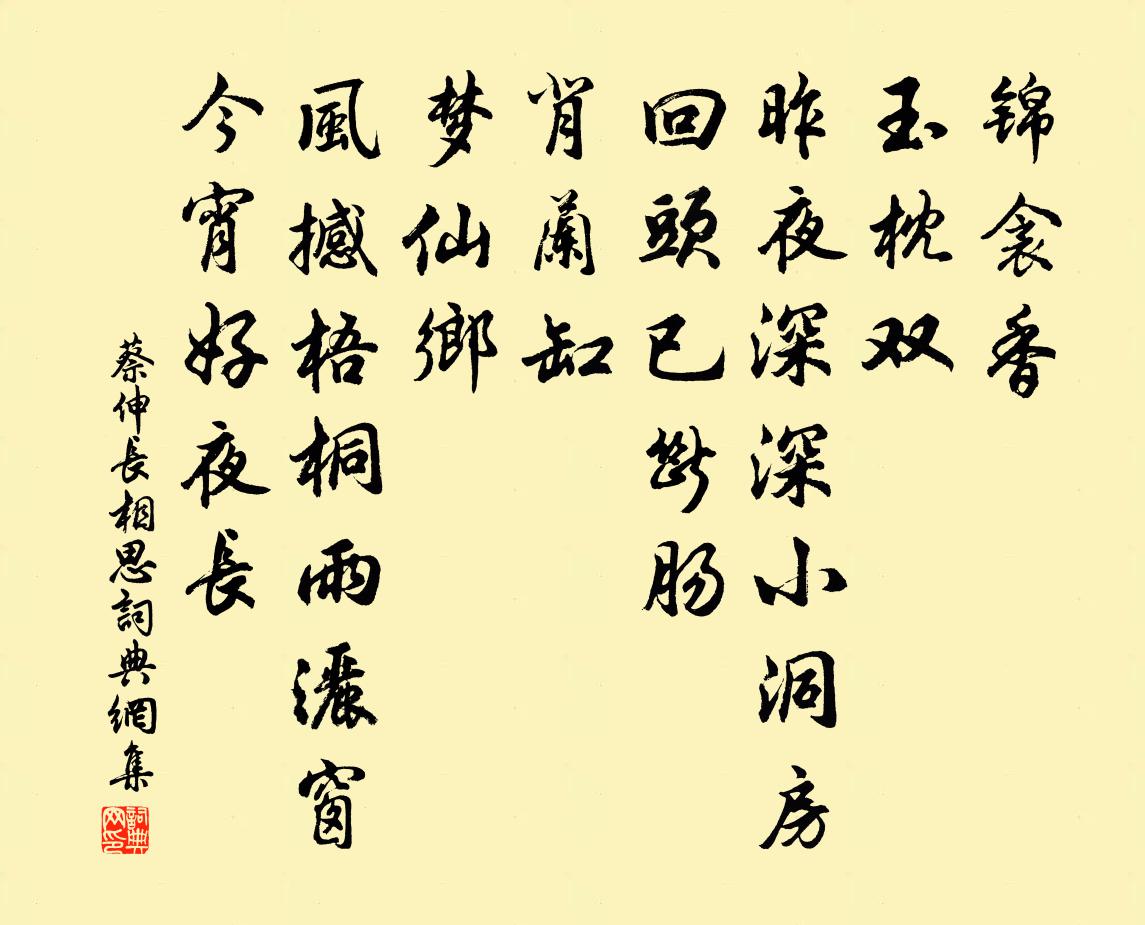 锦衾香
玉枕双
昨夜深深小洞房
回頭已斷肠
背蘭缸
梦仙鄉
風撼梧桐雨灑窗
今宵好夜長
蔡伸長相思詞典網集
詞典网印